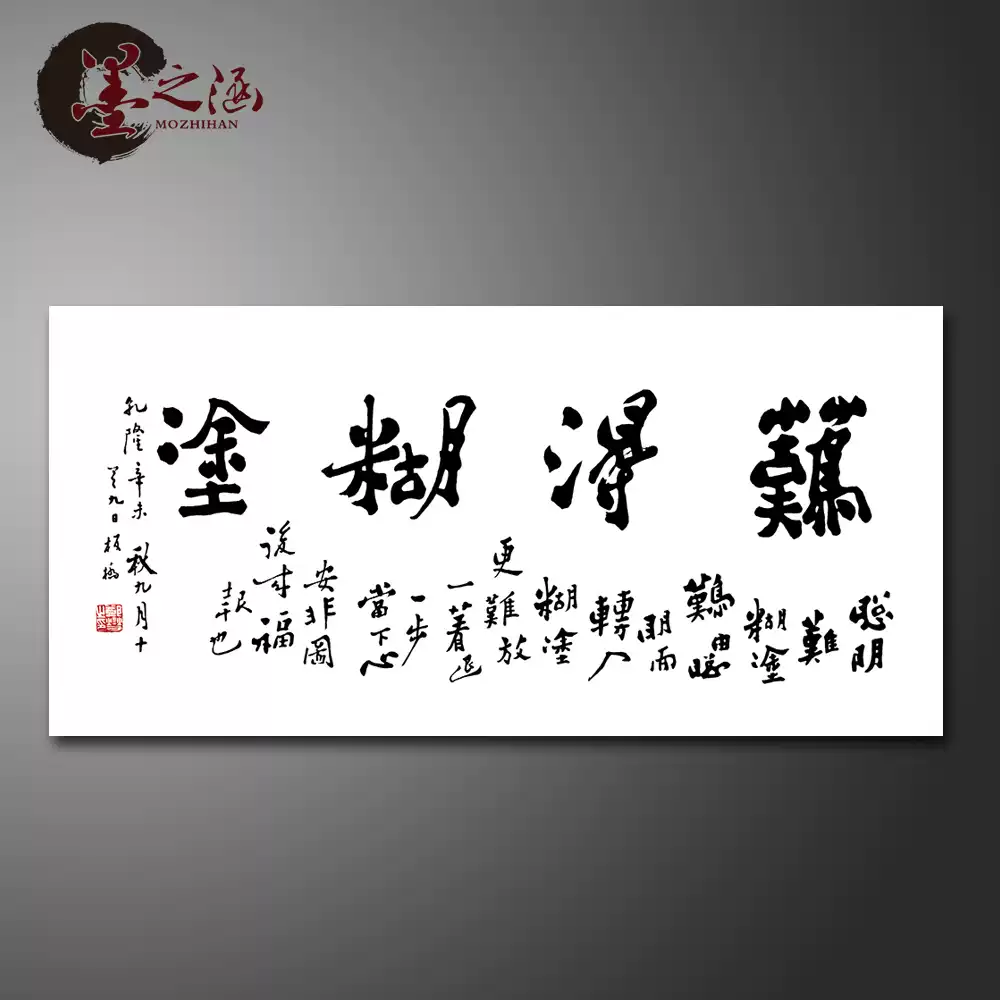 墨之涵
MOZHIHAN
難得糊塗
聰明
難
糊塗
難由聰
明而
轉入
糊塗
更難放
一著退
一步
當下心
安非圖
後來福
報也
乾隆辛未秋九月十
有九日板橋